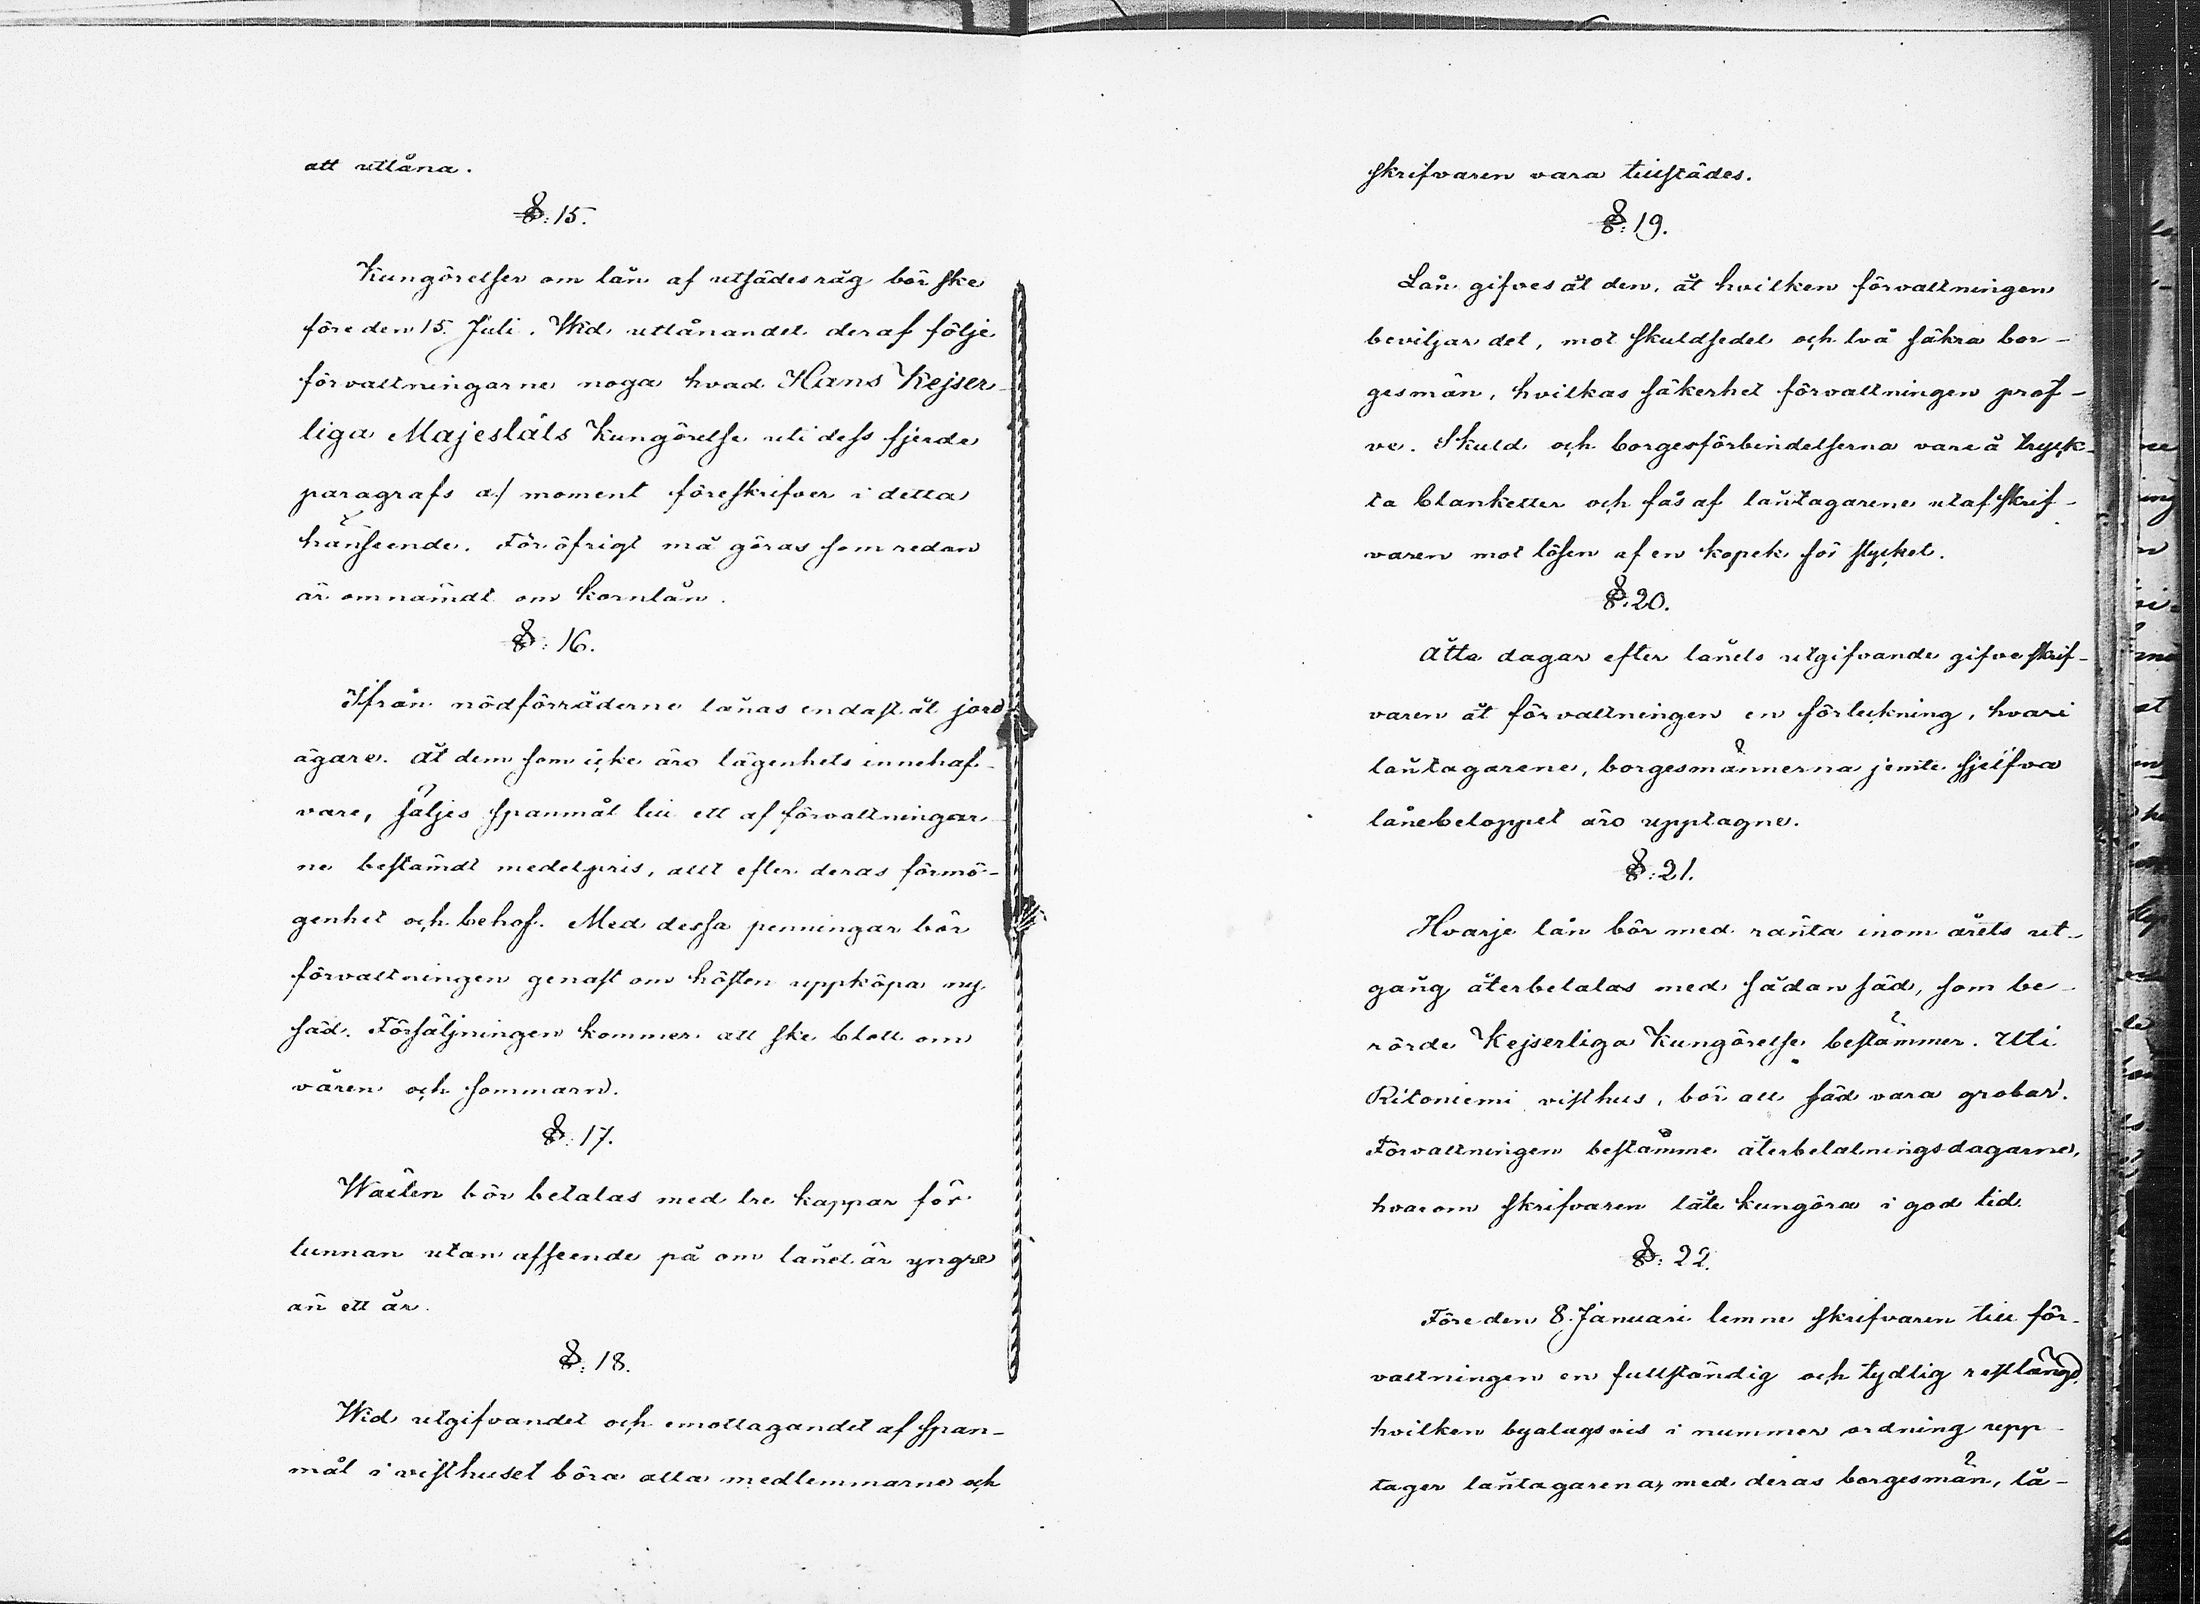 att utlåna.
§: 15.
Kungörelsen om lån af utsädesråg bör ske
före den 15 Juli. Wid utlånandet deraf följe
förvaltningarne noga hvad Hans Kejser-
liga Majestäts Kungörelse uti dess fjerde
paragrafs a/ moment föreskrifver i detta
hänseende. För öfrigt må göras som redan
är omnämdt om kornlån.
§: 16.
Ifrån nödförråderne lånas endast åt jord
ägare. Åt dem som icke äro lägenhets innehaf-
vare, säljes spanmål till ett af förvaltningar
ne bestämdt medelpris, allt efter deras förmö-
genhet och behof. Med dessa penningar bör
förvaltningen genast om hösten uppköpa ny
säd. Försäljningen kommer att ske blott om
våren och sommarn.
§: 17.
Wälten bör betalas med tre kappar för
tunnan utan afseende på om lånet är yngre
än ett år.
§: 18.
Wid utgifvandet och emottagandet af span-
mål i visthuset böra alla medlemmarne och
skrifvaren vara tillstädes.
§: 19.
Lån gifves åt den, åt hvilken förvaltningen
beviljar det, mot skuldsedel och två säkra bor-
gesmän, hvilkas säkerhet förvaltningen pröf-
ve. Skuld och borgesförbindelserna vare å tryck-
ta blanketter och fås af låntagarene utaf skrif-
varen mot lösen af en kopek för stycket.
§: 20.
Åtta dagar efter lånets utgifvande gifve skrif-
varen åt förvaltningen en förteckning, hvari
låntagarene, borgesmännerna jemte sjelfva
lånebeloppet äro upptagne.
§: 21.
Hvarje lån bör med ränta inom årets ut-
gång återbetalas med sådan säd, som be-
rörde Kejserliga Kungörelse bestämmer. Uti
Ritoniemi visthus, bör all säd vara grobar.
Förvaltningen bestämme återbetalningsdagarne,
hvarom skrifvaren låte kungöra i god tid.
§: 22.
Före den 8 Januari lemne skrifvaren till för-
valtningen en fullständig och tydlig restlängd,
hvilken byalagsvis i nummer ordning upp-
tager låntagarena, med deras borgesmän, lå-